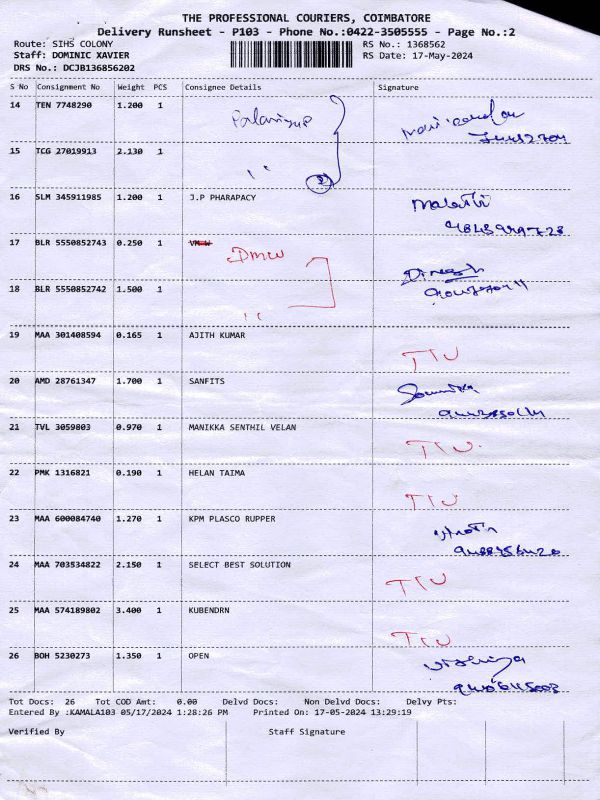 THE PROFESSIONAL COURIERS, COIMBATORE
Delivery Runsheet - P103 - Phone No.:0422-3505555 - Page No.:2
Route: SIHS COLONY RS No.: 1368562
Staff: DOMINIC XAVIER RS Date: 17-May-2024
DRS No.: DCJB136856202
S No Consignment No Weight PCS Consignee Details Signature
14 TEN 7748290 1.200 1
15 TCG 27019913 2.130 1 "
16 SLM 345911985 1.200 1 J.P PHARAPACY
17 BLR 5550852743 0.250 1 DMW Dinesh
18 BLR 5550852742 1.500 1 "
19 MAA 301408594 0.165 1 AJITH KUMAR
20 AMD 28761347 1.700 1 SANFITS
21 TVL 3059803 0.970 1 MANIKKA SENTHIL VELAN
22 PMK 1316821 0.190 1 HELAN TAIMA
23 MAA 600084740 1.270 1 KPM PLASCO RUPPER
24 MAA 703534822 2.150 1 SELECT BEST SOLUTION
25 MAA 574189802 3.400 1 KUBENDRN
26 BOH 5230273 1.350 1 OPEN
Tot Docs: 26 Tot COD Amt: 0.00 Delvd Docs: Non Delvd Docs: Delvy Pts:
Entered By :KAMALA103 05/17/2024 1:28:26 PM Printed On: 17-05-2024 13:29:19
Verified By Staff Signature